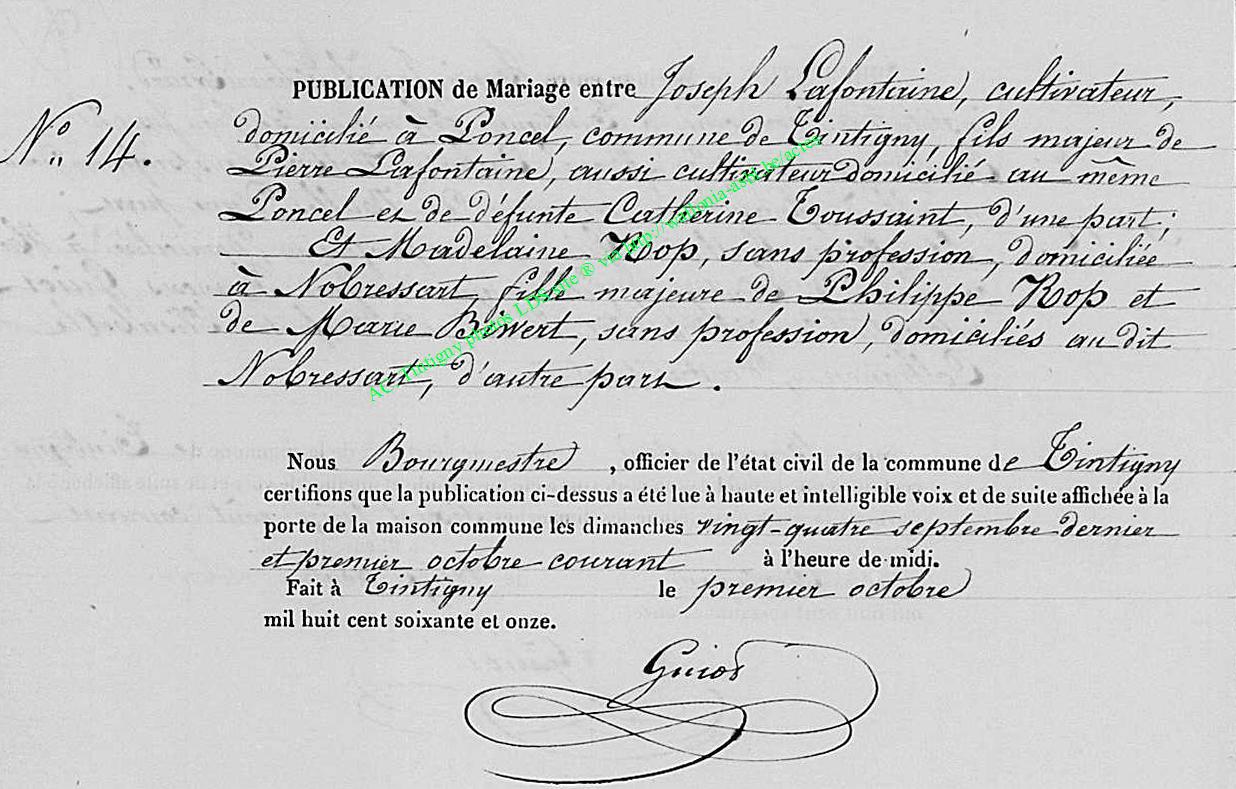 PUBLICATION de Mariage entre Joseph Lafontaine, cultivateur,
N° 14.
domicilié à Poncel, commune de Tintigny, fils majeur de
Pierre Lafontaine, aussi cultivateur domicilié au même
Poncel et de défunte Catherine Toussaint, d'une part;
Et Madelaine Rop, sans profession, domiciliée
à Nobressart, fille majeure de Philippe Rop et
de Marie Bewert, sans profession, domiciliés au dit
Nobressart, d'autre part.
AC. Tintigny photos LDS Arte ® via http://wallonia-asbl.be/actes
Nous Bourgmestre, officier de l'état civil de la commune de Tintigny
certifions que la publication ci-dessus a été lue à haute et intelligible voix et de suite affichée à la
porte de la maison commune les dimanches vingt-quatre septembre dernier
et premier octobre courant à l'heure de midi.
Fait à Tintigny le premier octobre
mil huit cent soixante et onze.
Guiot